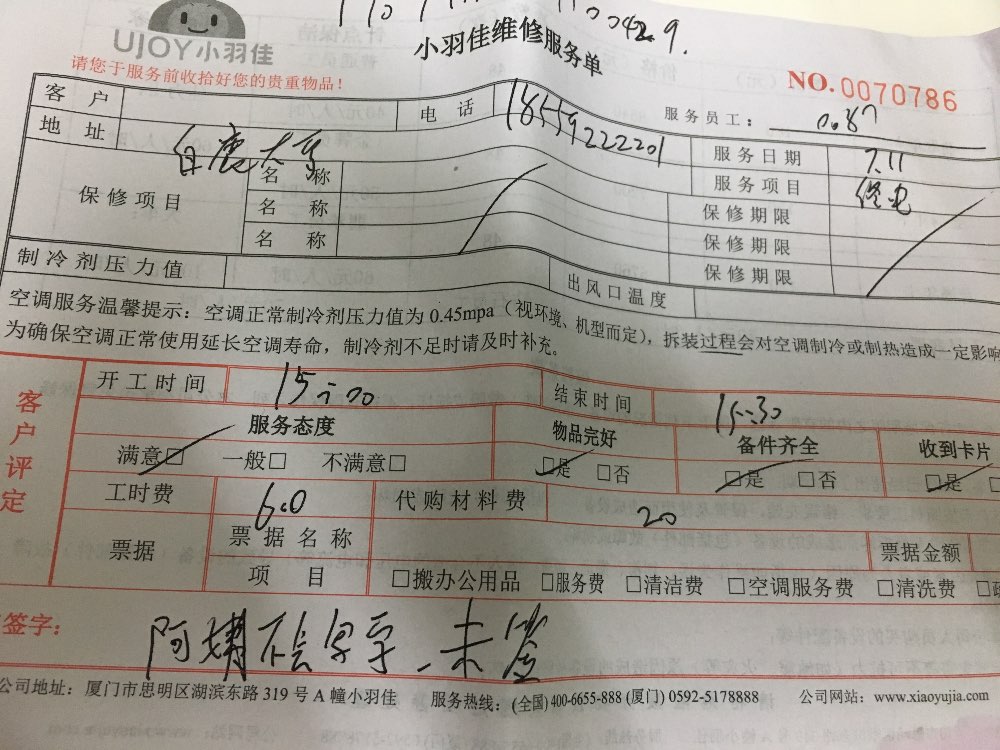 UJOY小羽佳
小羽佳维修服务单
请您于服务前收拾好您的贵重物品！
NO.0070786
客户 电话 18559222201 服务员工：087
地址 白鹿大享 服务日期 7.11
保修项目 名称 服务项目 修电
名称 保修期限
名称 保修期限
保修期限
制冷剂压力值 出风口温度
空调服务温馨提示：空调正常制冷剂压力值为 0.45mpa（视环境、机型而定），拆装过程会对空调制冷或制热造成一定影响
为确保空调正常使用延长空调寿命，制冷剂不足时请及时补充。
客户评定
开工时间 15:00 结束时间 15:30
服务态度 物品完好 备件齐全 收到卡片
满意□ 一般□ 不满意□ □是 □否 □是 □否 □是
工时费 60 代购材料费 20
票据 票据名称 票据金额
项目 □搬办公用品 □服务费 □清洁费 □空调服务费 □清洗费
签字： 阿姨不会写字.未签
公司地址：厦门市思明区湖滨东路 319 号 A 幢小羽佳 服务热线：(全国) 400-6655-888 (厦门) 0592-5178888 公司网站：www.xiaoyujia.com